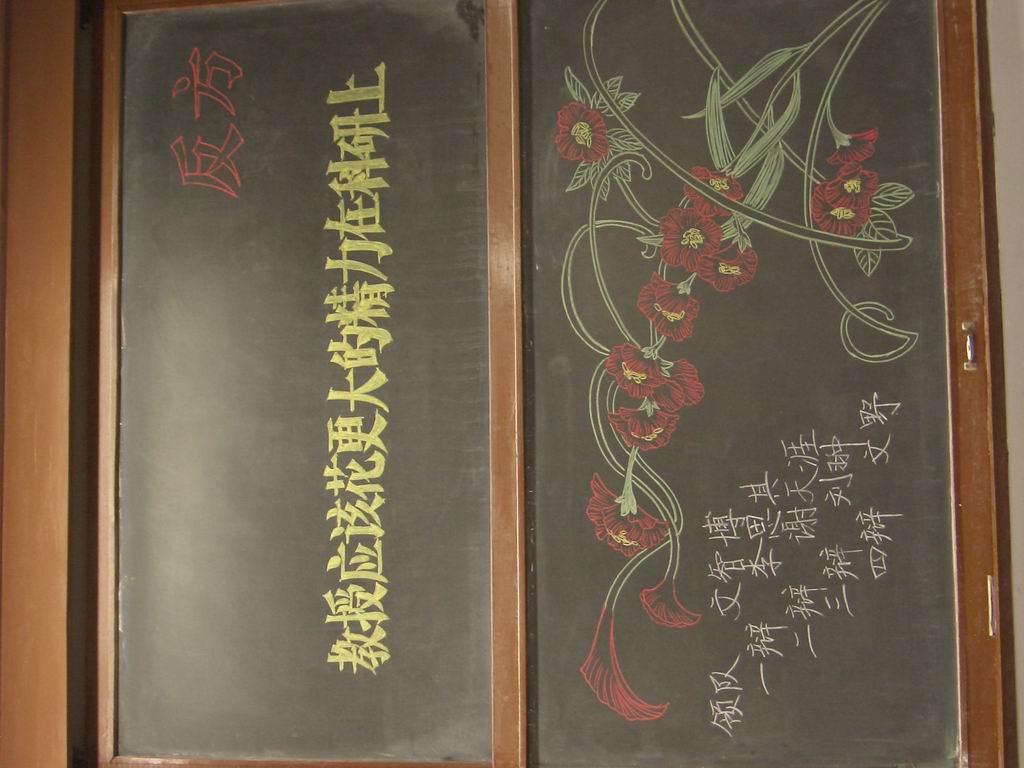 反方
教授应该花更大的精力在科研上
领队 文智博
一辩 李思其
二辩 谢天涯
三辩 刘
四辩 文野